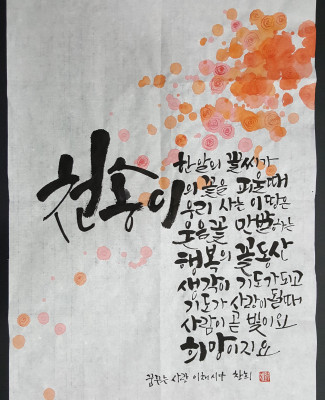 천송이
한알의 꽃씨가
의 꽃을 피울때
우리 사는 이 땅은
웃음꽃 만발하는
행복의 꽃동산
생각이 기도가 되고
기도가 사랑이 될때
사람이 곧 빛이요
희망이지요
꿈꾸는 사람 이해인